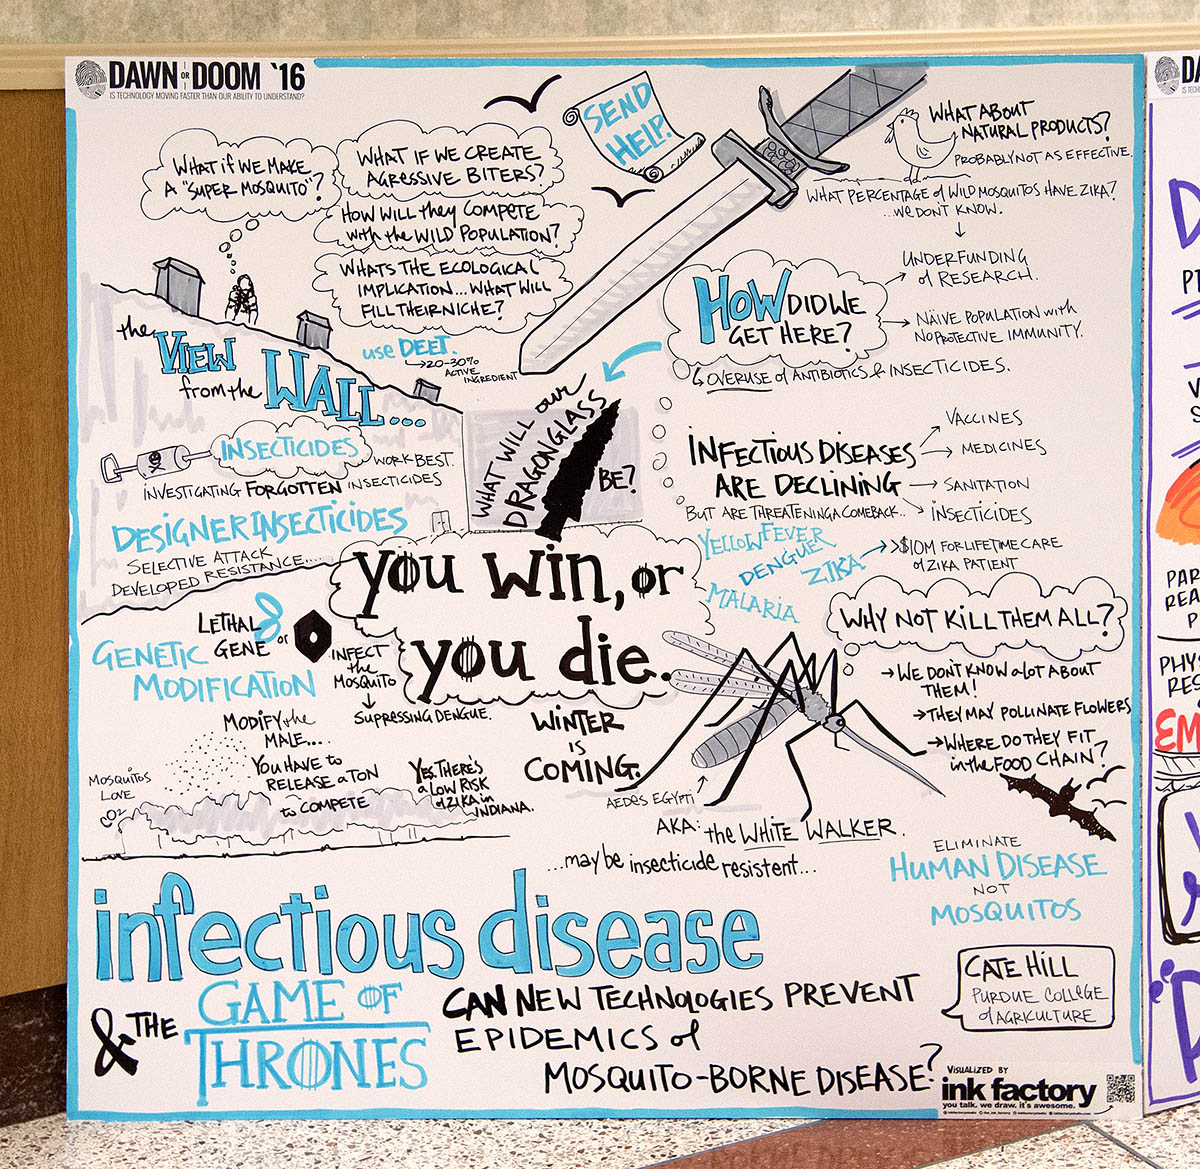 DAWN OR DOOM '16
IS TECHNOLOGY MOVING FASTER THAN OUR ABILITY TO UNDERSTAND?
SEND
HELP.
WHAT IF WE MAKE
A "SUPER MOSQUITO"?
WHAT IF WE CREATE
AGRESSIVE BITERS?
HOW WILL they COMPETE
with the WILD POPULATION?
WHATS THE ECOLOGICAL
IMPLICATION... WHAT WILL
FILL THEIR NICHE?
WHAT ABOUT
NATURAL PRODUCTS?
PROBABLY NOT AS EFFECTIVE.
WHAT PERCENTAGE of WILD MOSQUITOS HAVE ZIKA?
...WE DON'T KNOW.
HOW DID WE
GET HERE?
UNDERFUNDING
of RESEARCH.
NAIVE POPULATION with
NO PROTECTIVE IMMUNITY.
OVERUSE of ANTIBIOTICS & INSECTICIDES.
the VIEW
from the WALL...
use DEET.
20-30%
ACTIVE
INGREDIENT
INSECTICIDES
WORK BEST.
INVESTIGATING FORGOTTEN INSECTICIDES
DESIGNER INSECTICIDES
SELECTIVE ATTACK
DEVELOPED RESISTANCE....
WHAT WILL our
DRAGONGLASS
BE?
INFECTIOUS DISEASES
ARE DECLINING
VACCINES
MEDICINES
SANITATION
INSECTICIDES
BUT ARE THREATENING A COMEBACK..
YELLOW FEVER
DENGUE
ZIKA
MALARIA
>$10M FOR LIFETIME CARE
of ZIKA PATIENT
you win, or
you die.
LETHAL
GENE
or
GENETIC
MODIFICATION
INFECT
the
MOSQUITO
SUPRESSING DENGUE.
MODIFY the
MALE...
YOU HAVE to
RELEASE a TON
to COMPETE
MOSQUITOS
LOVE
CO2
YES. THERE'S
a LOW RISK
of ZIKA in
INDIANA.
WINTER
IS
COMING.
WHY NOT KILL THEM ALL?
WE DON'T KNOW a LOT ABOUT
THEM!
THEY MAY POLLINATE FLOWERS
WHERE DO THEY FIT
in the FOOD CHAIN?
AEDES EGYPTI
AKA: the WHITE WALKER.
...may be insecticide resistent...
ELIMINATE
HUMAN DISEASE
NOT
MOSQUITOS
infectious disease
& THE GAME OF
THRONES
CAN NEW TECHNOLOGIES PREVENT
EPIDEMICS of
MOSQUITO-BORNE DISEASE?
CATE HILL
PURDUE COLLEGE
of AGRICULTURE
VISUALIZED BY
ink factory
you talk. we draw. it's awesome.